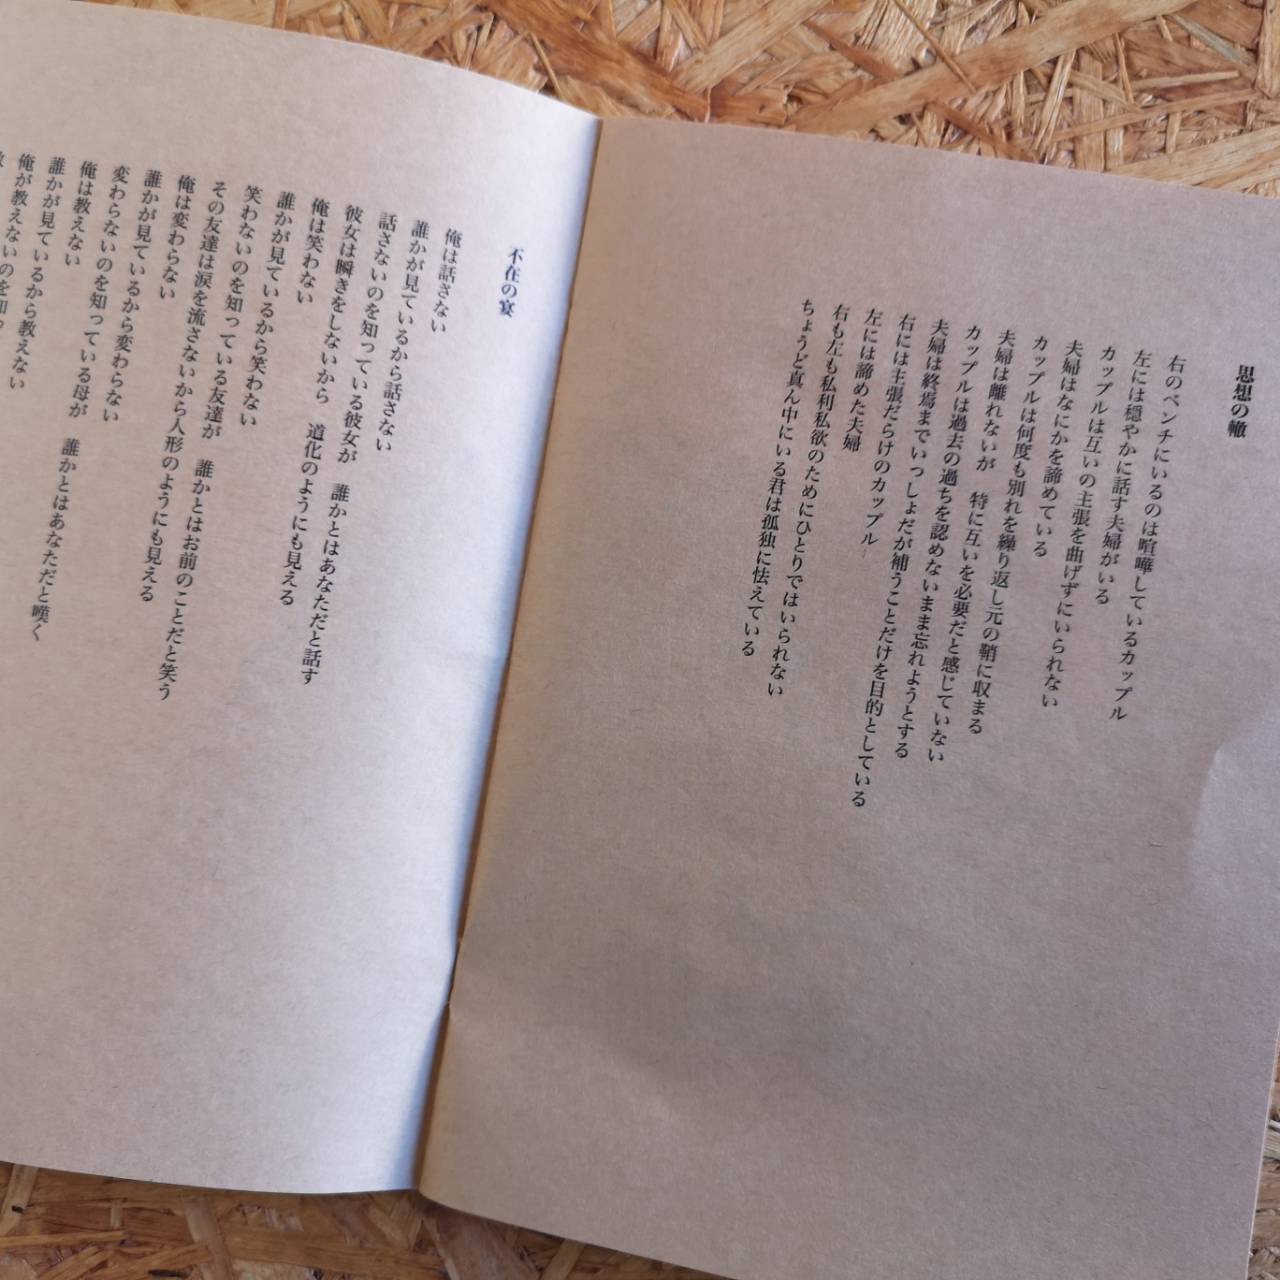 思想の轍
右のベンチにいるのは喧嘩しているカップル
左には穏やかに話す夫婦がいる
カップルは互いの主張を曲げずにいられない
夫婦はなにかを諦めている
カップルは何度も別れを繰り返し元の鞘に収まる
夫婦は離れないが　特に互いを必要だと感じていない
カップルは過去の過ちを認めないまま忘れようとする
夫婦は終焉までいっしょだが補うことだけを目的としている
右には主張だらけのカップル
左には諦めた夫婦
右も左も私利私欲のためにひとりではいられない
ちょうど真ん中にいる君は孤独に怯えている
不在の宴
俺は話さない
誰かが見ているから話さない
話さないのを知っている彼女が　誰かとはあなただと話す
彼女は瞬きをしないから　道化のようにも見える
俺は笑わない
誰かが見ているから笑わない
笑わないのを知っている友達が　誰かとはお前のことだと笑う
その友達は涙を流さないから人形のようにも見える
俺は変わらない
誰かが見ているから変わらない
変わらないのを知っている母が　誰かとはあなただと嘆く
俺は教えない
誰かが見ているから教えない
俺が教えないのを知